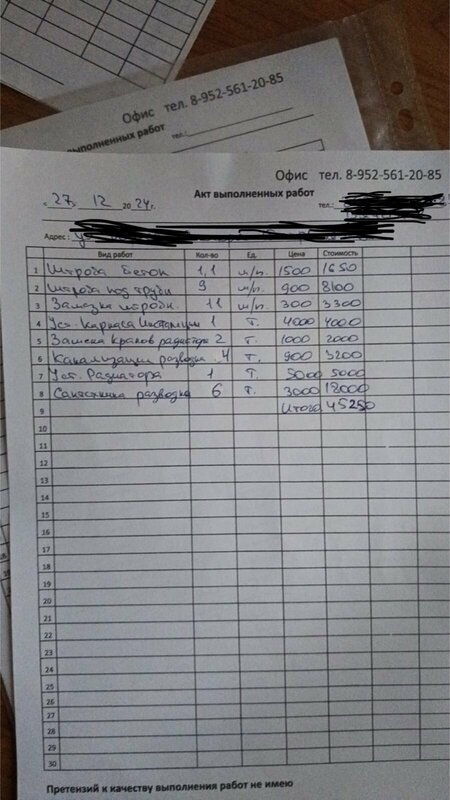 Офис тел. 8-952-561-20-85
выполненных работ тел.:
Офис тел. 8-952-561-20-85
Акт выполненных работ
« 27 » 12 2024 г. тел.:
Адрес :
Вид работ Кол-во Ед. Цена Стоимость
1 Штроба Бетон 1,1 м/п. 1500 1650
2 Штроба под трубы 9 м/п. 900 8100
3 Замазка штробы. 11 м/п. 300 3300
4 Уст. Каркаса Инсталяции 1 т. 4000 4000
5 Замена Кранов радиатора 2 т. 1000 2000
6 Канализации разводка. 4 т. 900 3200
7 Уст. Радиатора 1 т. 5000 5000
8 Сантехника разводка 6 т. 3000 18000
9 Итого 45250
10
11
12
13
14
15
16
17
18
19
20
21
22
23
24
25
26
27
28
29
30
Претензий к качеству выполнения работ не имею